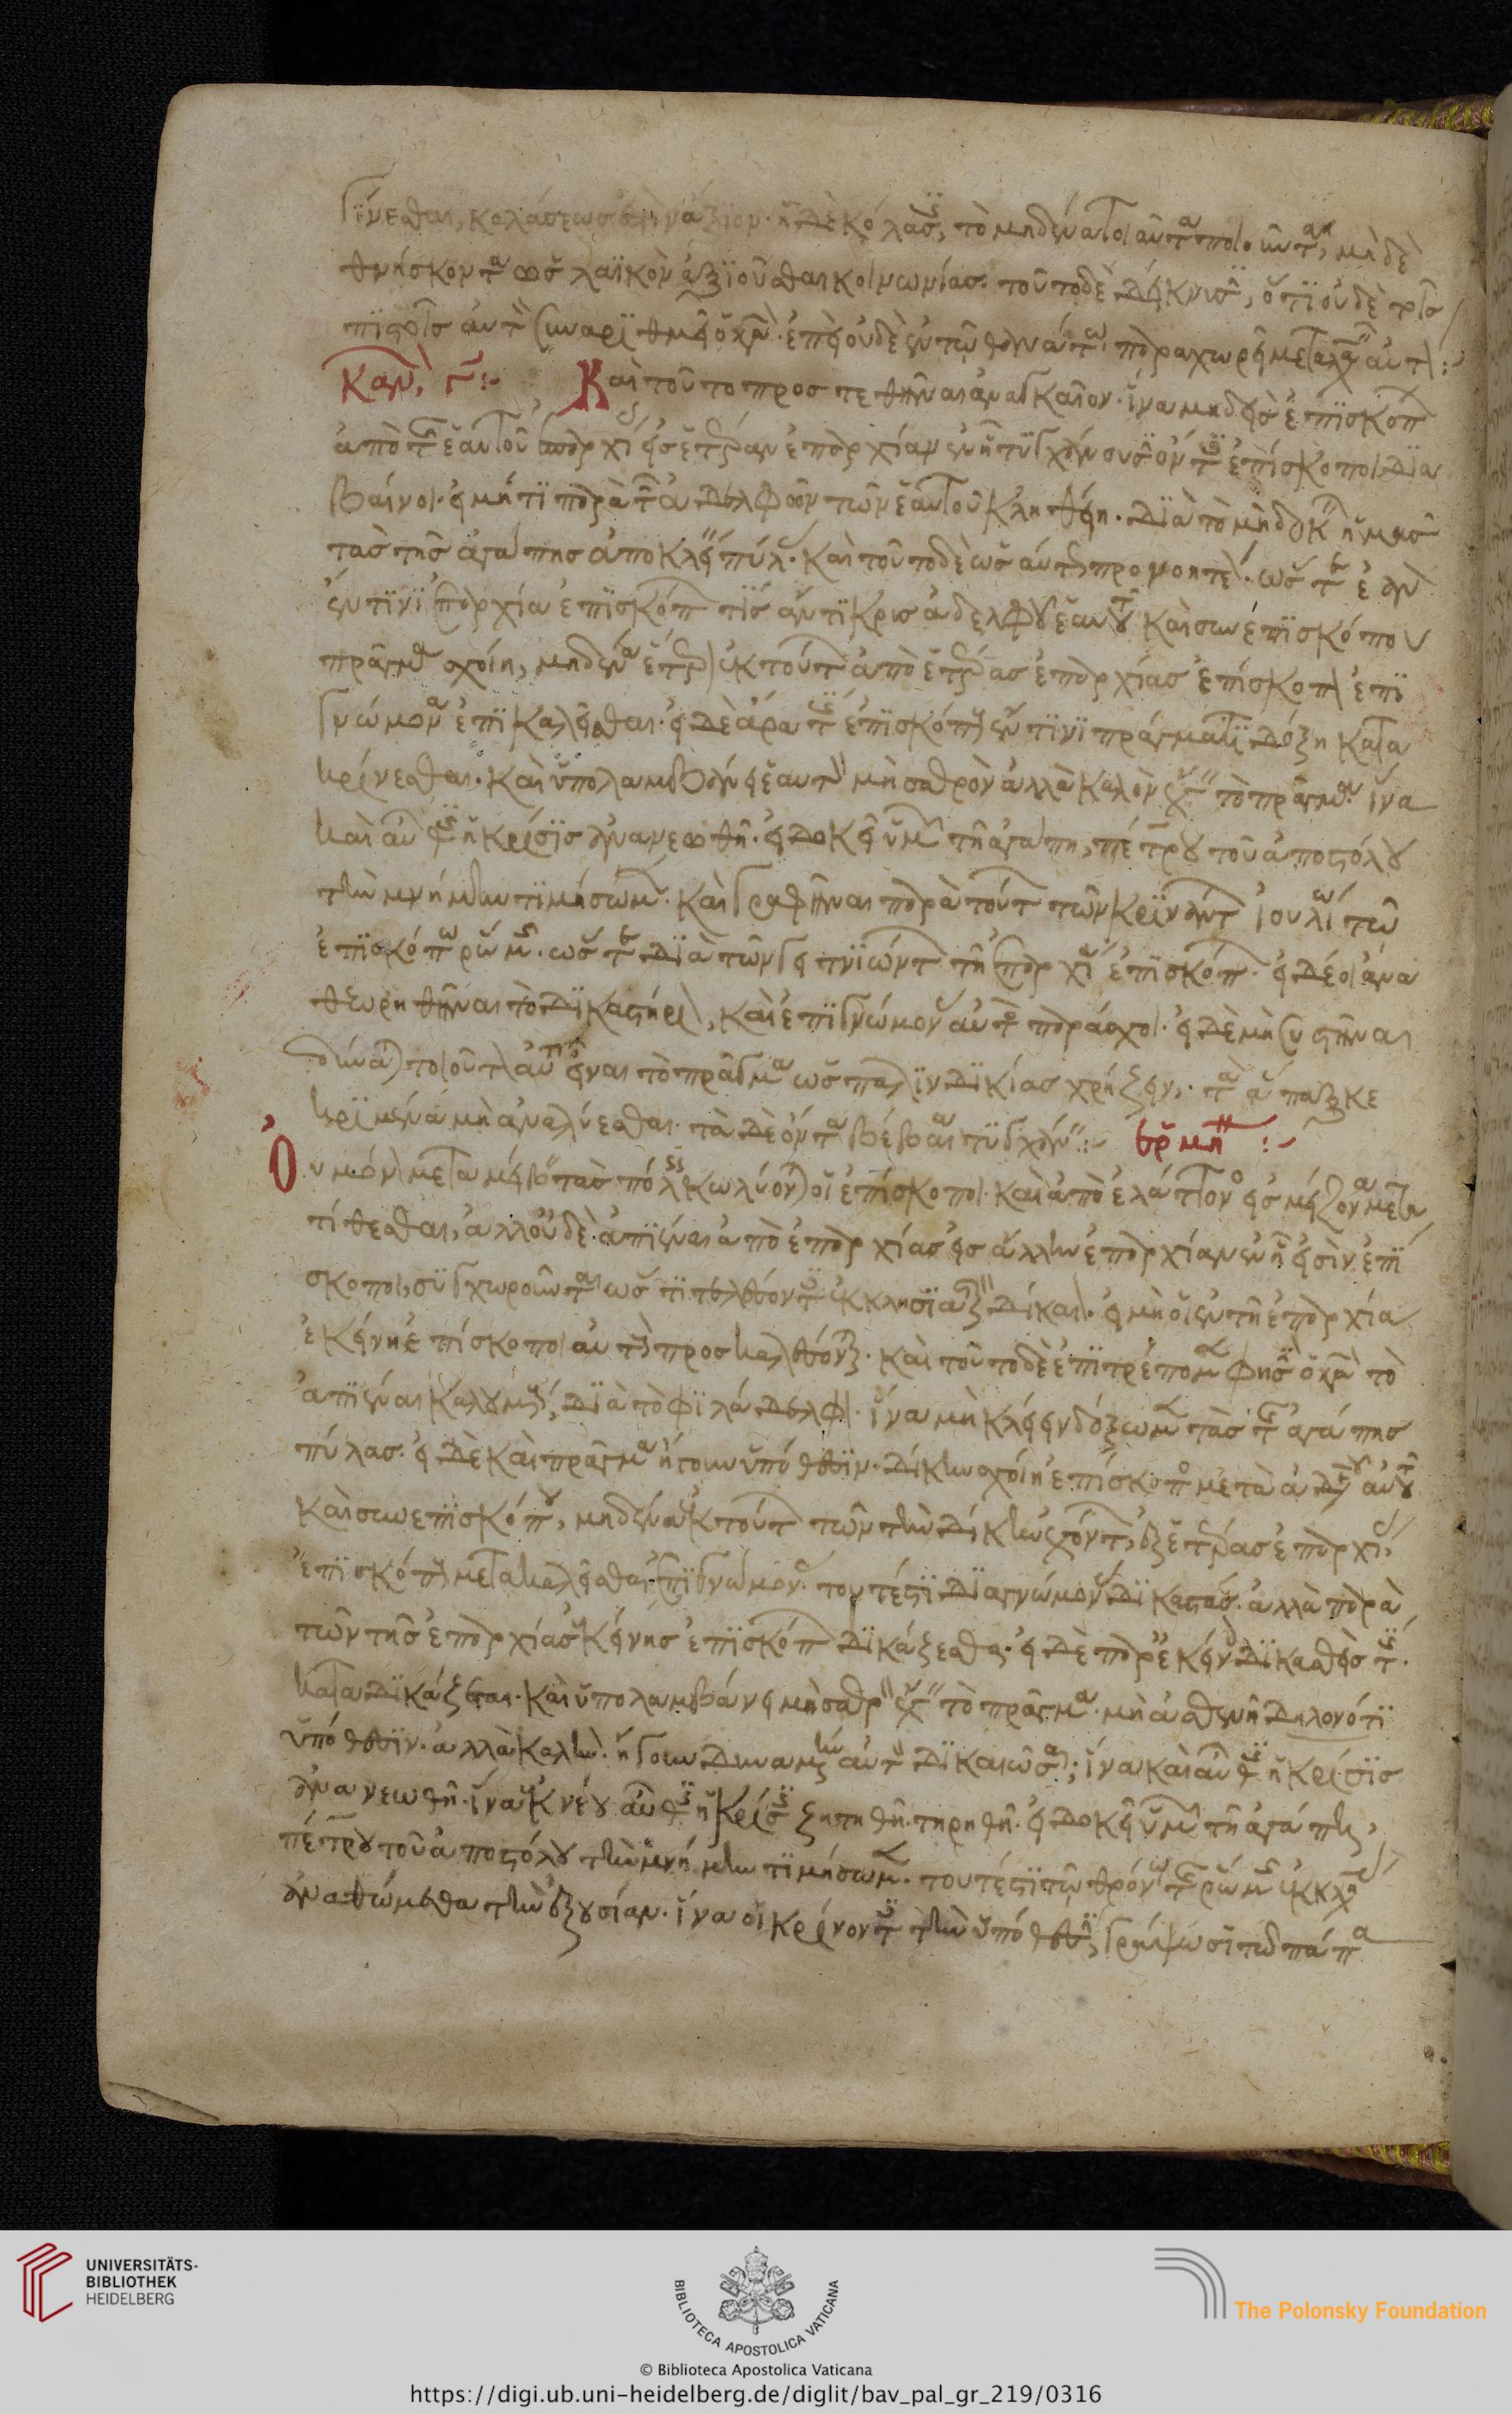 γίνεσθαι, κολάσεως ἐστὶν ἄξιον· ἡ δὲ κόλασις, τὸ μηδένα τοιαῦτα ποιοῦντα, μὴ δὲ
θνήσκοντα ὡς λαϊκὸν ἀξιοῦσθαι κοινωνίας· τοῦτο δὲ δείκνυσιν, ὅτι οὐδὲ τοῖς
πιστοῖς αὐτὸν συναριθμεῖ ὁ κανών· ἐπεὶ οὐδὲ ἐν τῷ θανάτῳ παραχωρεῖ μεταλαχεῖν αὐτόν :
Κανών γ :
Καὶ τοῦτο προστεθῆναι ἀναγκαῖον· ἵνα μηδεὶς ἐπισκόπων
ἀπὸ τῆς ἑαυτοῦ ἐπαρχίας εἰς ἑτέραν ἐπαρχίαν ἐν ᾗ τυγχάνουσιν ὄντες ἐπίσκοποι δια
βαίνοι· εἰ μή τι παρὰ τῶν ἀδελφῶν τῶν ἑαυτοῦ κληθείη· διὰ τὸ μὴ δοκεῖν ἡμᾶς
τὰς τῆς ἀγάπης ἀποκλείειν πύλας· καὶ τοῦτο δὲ ὡσαύτως προνοητέον· ὥστε ἐὰν
ἔν τινι ἐπαρχία ἐπισκόπων τὶς ἄντικρις ἀδελφοῦ ἑαυτοῦ καὶ συνεπισκόπου
πρᾶγμα σχοίη, μηδένα ἕτερον ἐκ τούτων ἀπὸ ἑτέρας ἐπαρχίας ἐπίσκοπον ἐπι
γνώμονα ἐπικαλεῖσθαι· εἰ δὲ ἄρα τις ἐπισκόπων ἔν τινι πράγματι δόξη κατα
κρίνεσθαι· καὶ ὑπολαμβάνει ἑαυτὸν μὴ σαθρὸν ἀλλὰ καλὸν ἔχειν τὸ πρᾶγμα· ἵνα
καὶ αὖθις ἡ κρίσις ἀνανεωθῆ· εἰ δοκεῖ ὑμῶν τῆ ἀγάπη, πέτρου τοῦ ἀποστόλου
τὴν μνήμην τιμήσωμεν· καὶ γραφῆναι παρὰ τούτων τῶν κρινάντων Ἰουλίω τῶ
ἐπισκόπω ῥώμης· ὥστε διὰ τῶν γειτνιώντων τῆ ἐπαρχία ἐπισκόπων· εἰ δέοι ἀνα
θεωρηθῆναι τὸ δικαστήριον, καὶ ἐπιγνώμονας αὐτὸς παράσχοι· εἰ δὲ μὴ συστῆναι
δύναται τοιοῦτον αὐτοῦ εἶναι τὸ πρᾶγμα ὡς παλινδικίας χρήζειν· τὰ ἅπαξ κε
κριμένα μὴ ἀναλύεσθαι· τὰ δὲ ὄντα βέβαια τυγχάνειν :
ἑρμην :
Οὐ μόνον μεταμείβοντας πόλεις κωλύονται οἱ ἐπίσκοποι· καὶ ἀπὸ ἐλάττονος εἰς μείζονα μετα
τίθεσθαι, ἀλλ' οὐδὲ ἀπιέναι ἀπὸ ἐπαρχίας εἰς ἄλλην ἐπαρχίαν ἐν ᾗ εἰσὶν ἐπί
σκοποι, συγχωροῦνται ὥς τι τελέσοντες ἐκκλησιαστικὸν δίκαιον· εἰ μὴ οἱ ἐν τῆ ἐπαρχία
ἐκείνη ἐπίσκοποι αὐτὸν προσκαλέσονται· καὶ τοῦτο δὲ ἐπιτρέπομεν φησὶν ὁ κανὼν τὸ
ἀπιέναι καλούμενον, διὰ τὸ φιλάδελφον· ἵνα μὴ κλείειν δόξωμεν τὰς τῆς ἀγάπης
πύλας· εἰ δὲ καὶ πρᾶγμα ἤτοι ὑπόθεσιν· δίκην σχοίη ἐπίσκοπος μετὰ ἀδελφοῦ αὐτοῦ
καὶ συνεπισκόπου, μηδένα ἐκ τούτων τῶν τὴν δίκην ἐχόντων, ἐξ ἑτέρας ἐπαρχίας
ἐπίσκοπον μετακαλεῖσθαι ἐπιγνώμονα· τουτέστι διαγνώμονας δικαστάς· ἀλλὰ παρὰ
τῶν τῆς ἐπαρχίας ἐκείνης ἐπισκόπων δικάζεσθαι· εἰ δὲ παρ' ἐκείνων δικασθείς τις
καταδικάζεται· καὶ ὑπολαμβάνει μὴ σαθρὸν ἔχειν τὸ πρᾶγμα· μὴ ἀσθενῆ δηλονότι
ὑπόθεσιν· ἀλλὰ καλήν· ἤγουν δυναμένην αὐτὸν δικαιῶσαι; ἵνα καὶ αὖθις ἡ κρίσις
ἀνανεωθῆ· ἵνα ἐκ νέου αὖθις ἡ κρίσις ζητηθῆ· τηρηθῆ· εἰ δοκεῖ ὑμῶν τῆ ἀγάπη,
πέτρου τοῦ ἀποστόλου τὴν μνήμην τιμήσωμεν· τουτέστι τῶ θρόνω τῆς ῥώμης ἐκκλησίας
ἀναθώμεθα τὴν ἐξουσίαν· ἵνα οἱ κρίνοντες τὴν ὑπόθεσιν, γράψωσι τῶ πάπα
UNIVERSITÄTS-
BIBLIOTHEK
HEIDELBERG
BIBLIOTECA APOSTOLICA VATICANA
The Polonsky Foundation
© Biblioteca Apostolica Vaticana
https://digi.ub.uni-heidelberg.de/diglit/bav_pal_gr_219/0316